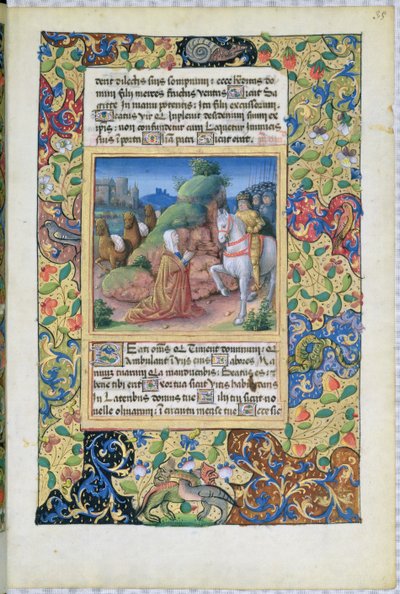 derit dilectis suis sompnum : ecce hereditas do
mini filij merces fructus ventris Sicut sa
gitte In manu potentis : Ita filij excussorum.
Beatus vir qui Implevit desiderium suum ex
ipsis : non confundetur cum loquetur Inimicis
suis In porta Glia patri Sicut erat.
Beati oms qui Timent dominum : qui
ambulant In vijs eius Labores Ma
nuum tuarum quia manducabis : Beatus es : et
bene tibi erit Uxor tua sicut vitis habundans
In lateribus domus tue Filij tui sicut no
velle olivarum : In circuitu mense tue Ecce sic